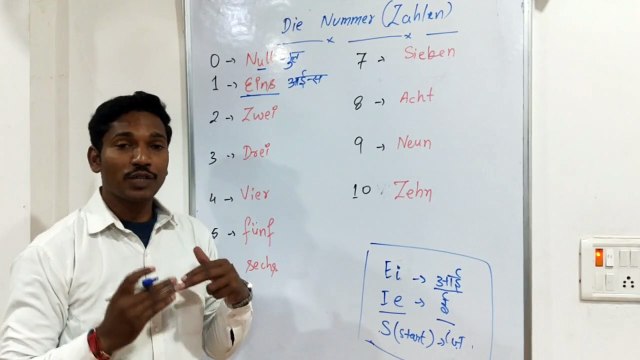 Die Nummer (Zahlen)
0 → Null नुल
1 → Eins आईन्स
2 → Zwei
3 → Drei
4 → Vier
5 → fünf
sechs
7 → Sieben
8 → Acht
9 → Neun
10 → Zehn
Ei → आई
Ie → ई
S (start) → ज